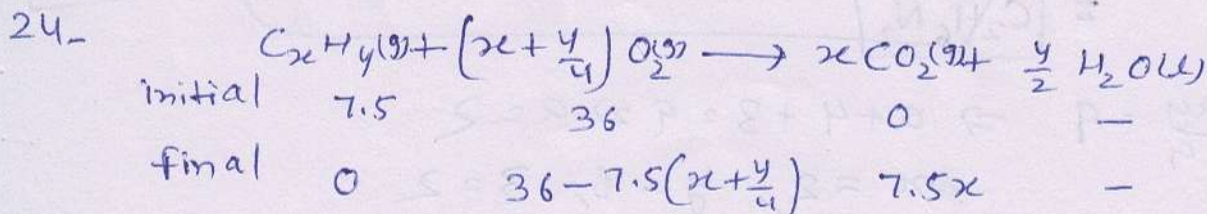 24- CxHy(g) + (x + y/4) O2(g) ⟶ x CO2(g) + y/2 H2O(l)
initial 7.5 36 0 —
final 0 36 - 7.5(x + y/4) 7.5x —